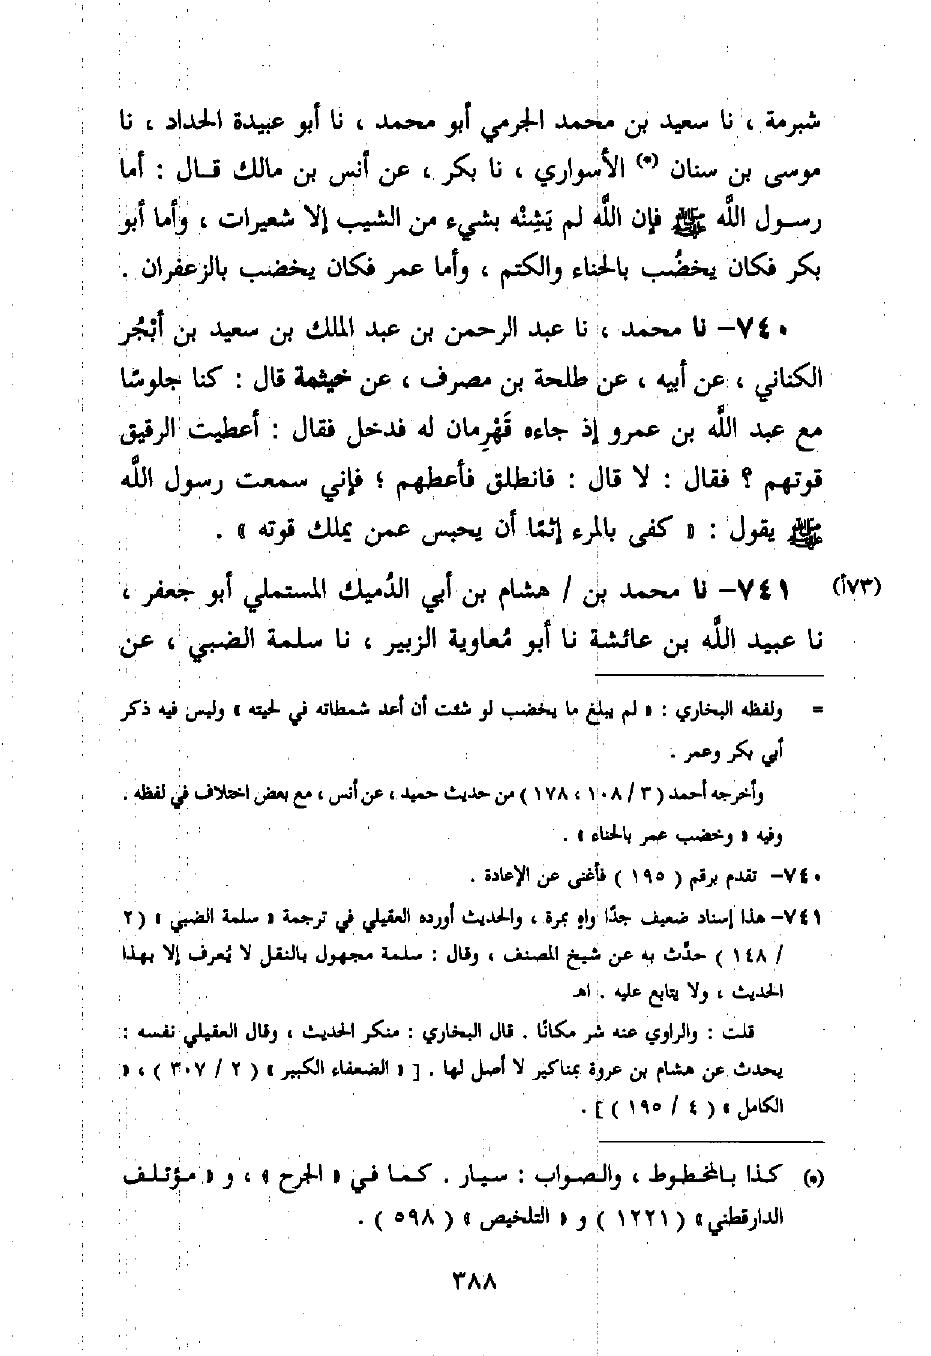 شبرمة ، نا سعيد بن محمد الجرمي أبو محمد ، نا أبو عبيدة الحداد ، نا
موسى بن سنان (*) الأسواري ، نا بكر ، عن أنس بن مالك قال : أما
رسول اللَّه ﷺ فإن اللَّه لم يَشِنْه بشيء من الشيب إلا شعيرات ، وأما أبو
بكر فكان يخضُب بالحناء والكتم ، وأما عمر فكان يخضب بالزعفران .
٧٤٠- نا محمد ، نا عبد الرحمن بن عبد الملك بن سعيد بن أبْجُر
الكناني ، عن أبيه ، عن طلحة بن مصرف ، عن خيثمة قال : كنا جلوسًا
مع عبد اللَّه بن عمرو إذ جاءه قَهْرِمان له فدخل فقال : أعطيت الرقيق
قوتهم ؟ فقال : لا قال : فانطلق فأعطهم ؛ فإني سمعت رسول اللَّه
ﷺ يقول : « كفى بالمرء إثمًا أن يحبس عمن يملك قوته » .
٧٤١- نا محمد بن / هشام بن أبي الدُميك المستملي أبو جعفر ، (٧٣أ)
نا عبيد اللَّه بن عائشة نا أبو مُعاوية الزبير ، نا سلمة الضبي ، عن
= ولفظه البخاري : « لم يبلغ ما يخضب لو شئت أن أعد شمطاته في لحيته » وليس فيه ذكر
أبي بكر وعمر .
وأخرجه أحمد ( ٣ / ١٠٨ ، ١٧٨ ) من حديث حميد ، عن أنس ، مع بعض اختلاف في لفظه .
وفيه « وخضب عمر بالحناء » .
٧٤٠- تقدم برقم ( ١٩٥ ) فأغنى عن الإعادة .
٧٤١- هذا إسناد ضعيف جدًا واهٍ بمرة ، والحديث أورده العقيلي في ترجمة « سلمة الضبي » ( ٢
/ ١٤٨ ) حدَّث به عن شيخ المصنف ، وقال : سلمة مجهول بالنقل لا يُعرف إلا بهذا
الحديث ، ولا يتابع عليه . اهـ
قلت : والراوي عنه شر مكانًا . قال البخاري : منكر الحديث ، وقال العقيلي نفسه :
يحدث عن هشام بن عروة بمناكير لا أصل لها . [ « الضعفاء الكبير » ( ٢ / ٣٠٧ ) ، «
الكامل » ( ٤ / ١٩٥ ) ] .
(*) كذا بالمخطوط ، والصواب : سيار . كما في « الجرح » ، و « مؤتلف
الدارقطني » ( ١٢٢١ ) و « التلخيص » ( ٥٩٨ ) .
٣٨٨